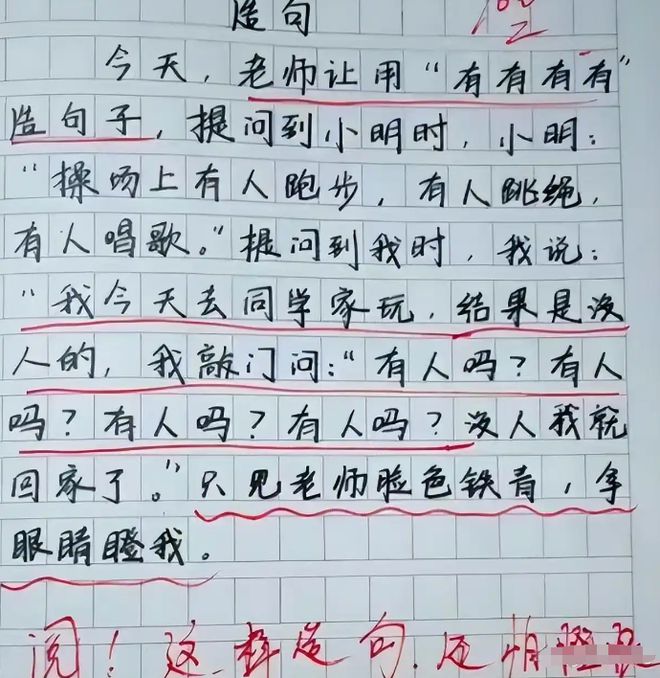 造句
100
今天，老师让用“有有有有”
造句子，提问到小明时，小明：
“操场上有人跑步，有人跳绳，
有人唱歌。”提问到我时，我说：
“我今天去同学家玩，结果是没
人的，我敲门问：“有人吗？有人
吗？有人吗？有人吗？没人我就
回家了。”只见老师脸色铁青，争
眼睛瞪我。
阅！这样造句，还怕